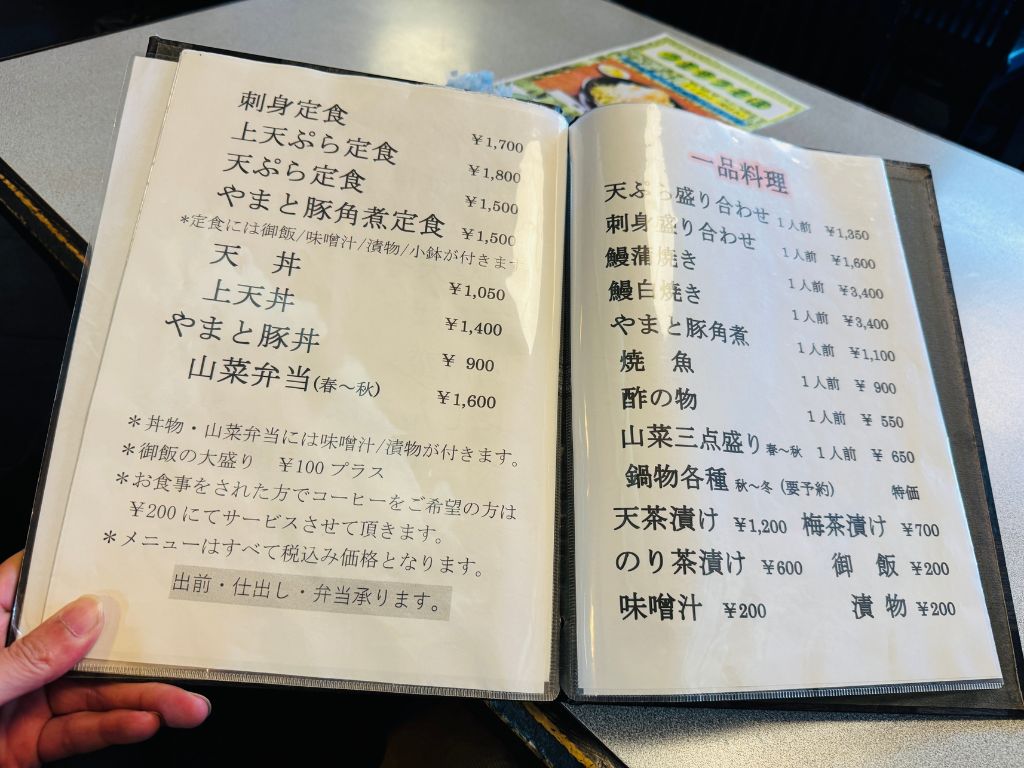 刺身定食 ¥1,700
上天ぷら定食 ¥1,800
天ぷら定食 ¥1,500
やまと豚角煮定食 ¥1,500
*定食には御飯/味噌汁/漬物/小鉢が付きます
天 丼 ¥1,050
上天丼 ¥1,400
やまと豚丼 ¥ 900
山菜弁当(春~秋) ¥1,600
*丼物・山菜弁当には味噌汁/漬物が付きます。
*御飯の大盛り ¥100プラス
*お食事をされた方でコーヒーをご希望の方は
¥200にてサービスさせて頂きます。
*メニューはすべて税込み価格となります。
出前・仕出し・弁当承ります。
一品料理
天ぷら盛り合わせ 1人前 ¥1,350
刺身盛り合わせ 1人前 ¥1,600
鰻蒲焼き 1人前 ¥3,400
鰻白焼き 1人前 ¥3,400
やまと豚角煮 1人前 ¥1,100
焼 魚 1人前 ¥ 900
酢の物 1人前 ¥ 550
山菜三点盛り 春~秋 1人前 ¥ 650
鍋物各種 秋~冬(要予約) 特価
天茶漬け ¥1,200 梅茶漬け ¥700
のり茶漬け ¥600 御 飯 ¥200
味噌汁 ¥200 漬 物 ¥200